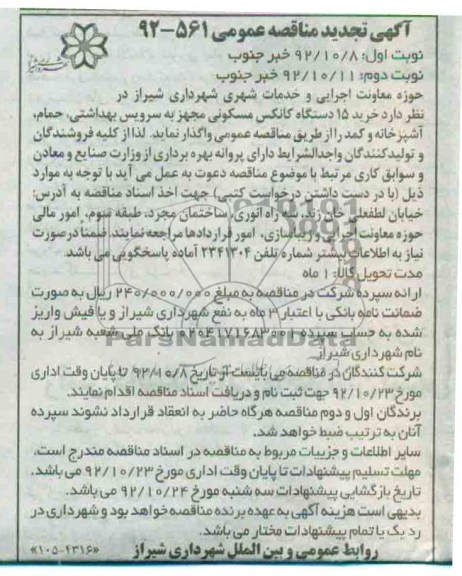 آگهی تجدید مناقصه عمومی ۵۶۱-۹۲
نوبت اول: ۹۲/۱۰/۸ خبر جنوب
نوبت دوم: ۹۲/۱۰/۱۱ خبر جنوب
حوزه معاونت اجرایی و خدمات شهری شهرداری شیراز در
نظر دارد خرید ۱۵ دستگاه کانکس مسکونی مجهز به سرویس بهداشتی، حمام،
آشپزخانه و کمد را از طریق مناقصه عمومی واگذار نماید. لذا از کلیه فروشندگان
و تولیدکنندگان واجدالشرایط دارای پروانه بهره برداری از وزارت صنایع و معادن
و سوابق کاری مرتبط با موضوع مناقصه دعوت به عمل می آید با توجه به موارد
ذیل (با در دست داشتن درخواست کتبی) جهت اخذ اسناد مناقصه به آدرس:
خیابان لطفعلی خان زند، سه راه انوری، ساختمان مجرد، طبقه سوم، امور مالی
حوزه معاونت اجرایی و زیباسازی، امور قراردادها مراجعه نمایند. ضمنا در صورت
نیاز به اطلاعات بیشتر شماره تلفن ۲۳۴۱۳۰۴ آماده پاسخگویی می باشد.
مدت تحویل کالا: ۱ ماه
ارائه سپرده شرکت در مناقصه به مبلغ ۲۴۰/۰۰۰/۰۰۰ ریال به صورت
ضمانت نامه بانکی با اعتبار ۳ ماه به نفع شهرداری شیراز و یا فیش واریز
شده به حساب سپرده بانک ملی شعبه شیراز به
نام شهرداری شیراز.
شرکت کنندگان در مناقصه می بایست از تاریخ ۹۲/۱۰/۸ تا پایان وقت اداری
مورخ ۹۲/۱۰/۲۳ جهت ثبت نام و دریافت اسناد مناقصه اقدام نمایند.
برندگان اول و دوم مناقصه هرگاه حاضر به انعقاد قرارداد نشوند سپرده
آنان به ترتیب ضبط خواهد شد.
سایر اطلاعات و جزییات مربوط به مناقصه در اسناد مناقصه مندرج است.
مهلت تسلیم پیشنهادات تا پایان وقت اداری مورخ ۹۲/۱۰/۲۳ می باشد.
تاریخ بازگشایی پیشنهادات سه شنبه مورخ ۹۲/۱۰/۲۴ می باشد.
بدیهی است هزینه آگهی به عهده برنده مناقصه خواهد بود و شهرداری در
رد یک یا تمام پیشنهادات مختار می باشد.
روابط عمومی و بین الملل شهرداری شیراز «۱۰۵-۴۳۱۶»
ParsNamadData